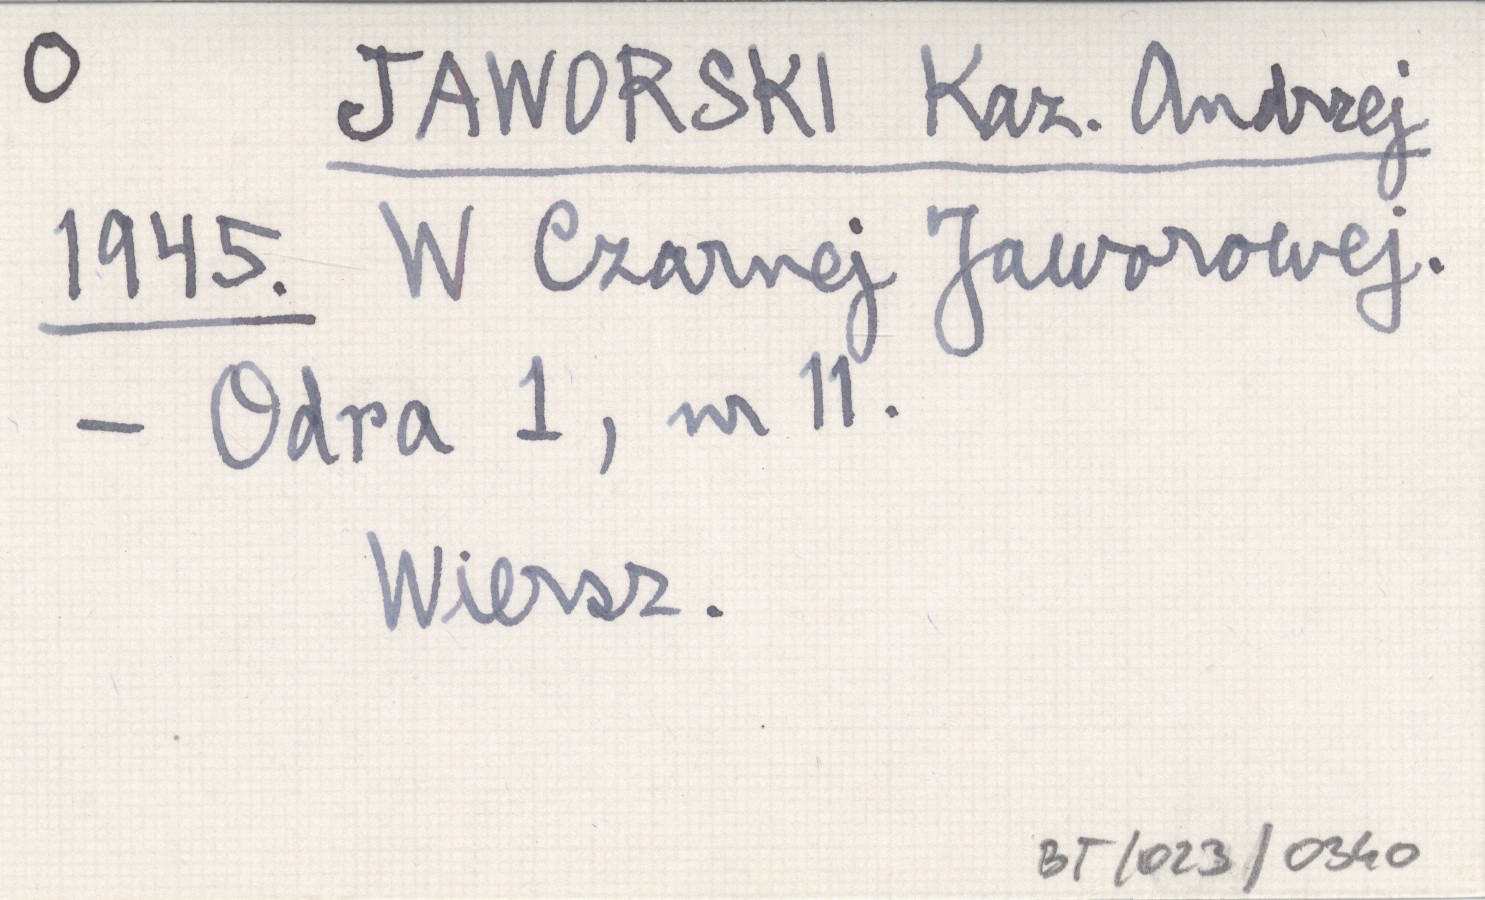 O JAWORSKI Kaz. Andrzej
1945. W Czarnej Jaworowej.
- Odra 1, nr 11.
Wiersz.
BT/023/0340